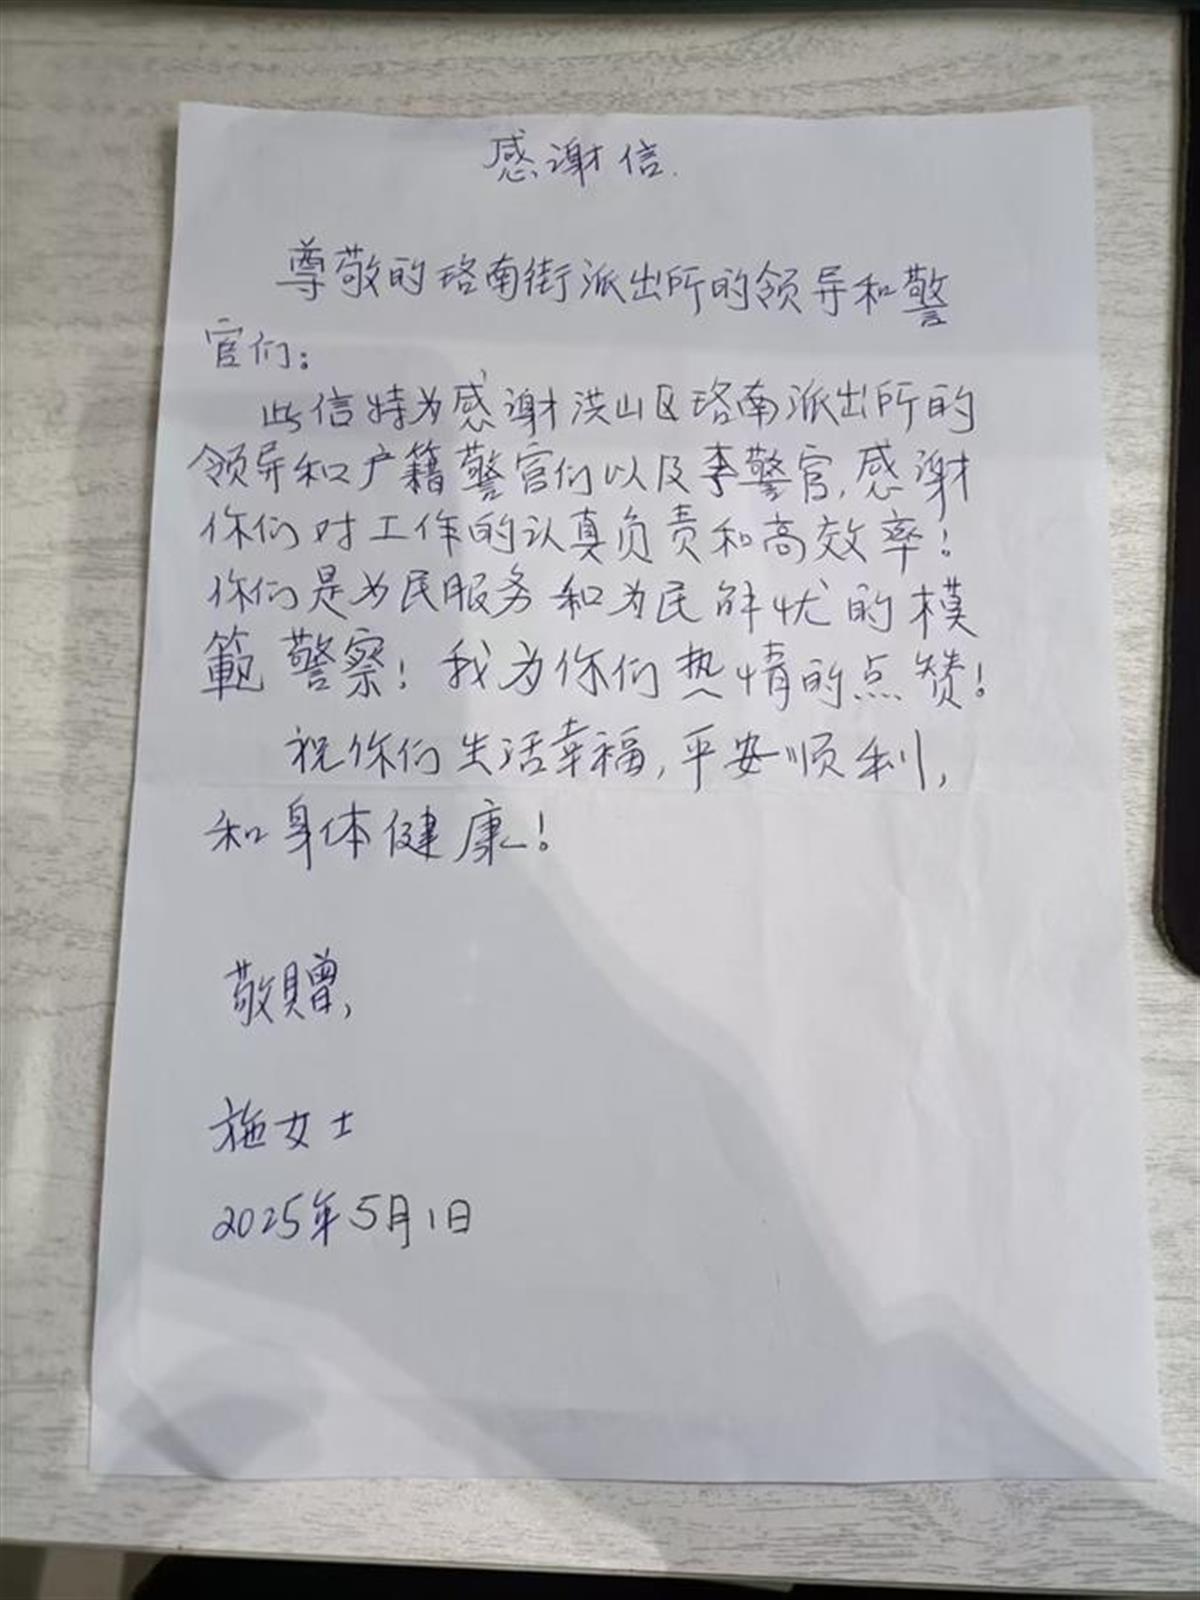 感谢信.
尊敬的珞南街派出所的领导和警
官们:
此信特为感谢洪山区珞南派出所的
领导和户籍警官们以及李警官,感谢
你们对工作的认真负责和高效率!
你们是为民服务和为民解忧的模
範警察!我为你们热情的点赞!
祝你们生活幸福,平安顺利,
和身体健康!
敬赠,
施女士
2025年5月1日